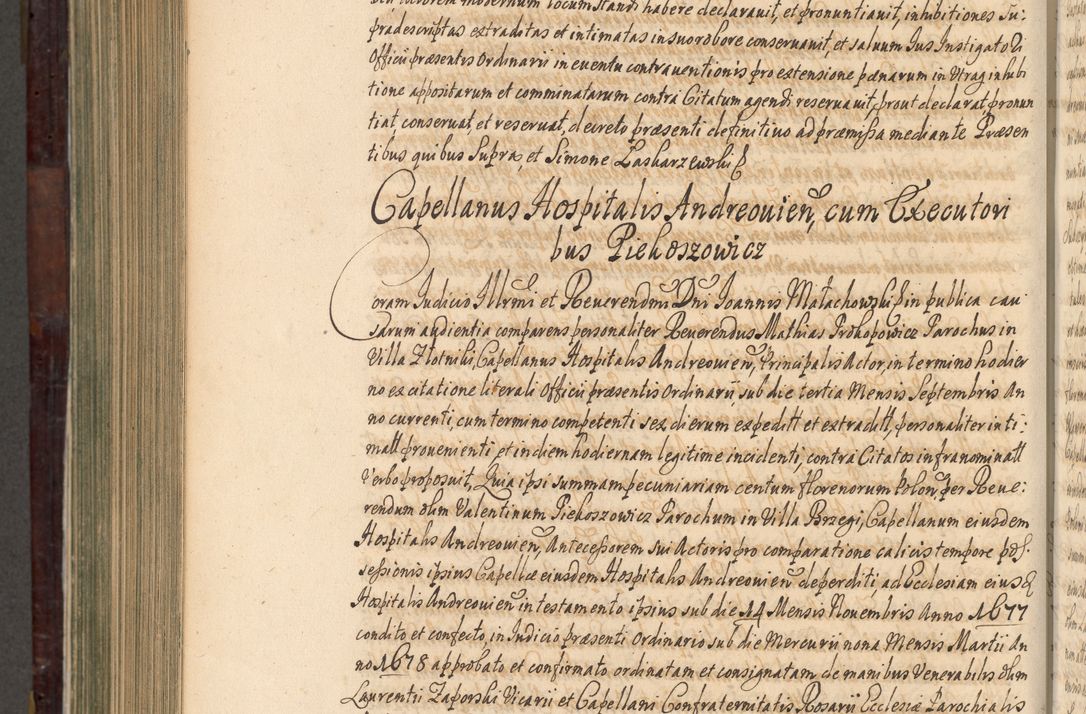 pradescriptas extraditas et intimatas in suo robore conservavit, et salvum Jus Instigatori
Officii præsentis Ordinarii in eventu contraventionis pro extensione pœnarum in Utraq inhibi
tione appositarum et comminatarum contra Citatum agendi reservavit, prout declarat, pronun
tiat, conservat, et reservat, decreto præsenti definitivo ad præmissa mediante Præsen
tibus quibus Supra, et Simone Laskarzewski
Capellanus Hospitalis Andreovien, cum Executori
bus Piekoszowicz
Coram Judicio Illrmi et Reverendmi Dni Joannis Małachowski in publica cau
sarum audientia comparens personaliter Reverendus Mathias Prokopowicz Parochus in
Villa Złotniki, Capellanus Hospitalis Andreovien, Principalis Actor, in termino hodier
no ex citatione literali Officii præsentis Ordinarii, sub die tertia Mensis Septembris An
no currenti, cum termino competenti sex dierum expeditt et extraditt, personaliter inti:
matt provenienti, et in diem hodiernam legitime incidenti, contra Citatos infranominatt
Verbo proposuit, Quia ipsi summam pecuniariam centum florenorum Polon, per Reve:
rendum olim Valentinum Piekoszowicz Parochum in Villa Brzegi, Capellanum eiusdem
Hospitalis Andreovien, Antecessorem sui Actoris pro comparatione calicis tempore pos:
sessionis ipsius Capellæ eiusdem Hospitalis Andreovien deperditi, ad Ecclesiam eiusd
Hospitalis Andreovien in testamento ipsius sub die 14 Mensis Novembris Anno 1677
condito et confecto, in Judicio præsenti Ordinario sub die Mercurii nona Mensis Martii An
no 1678 approbato et confirmato ordinatam et consignatam de manibus Venerabilis olim
Laurentii Zaporski Vicarii et Capellani Confraternitatis Rosarii Ecclesiæ Parochialis